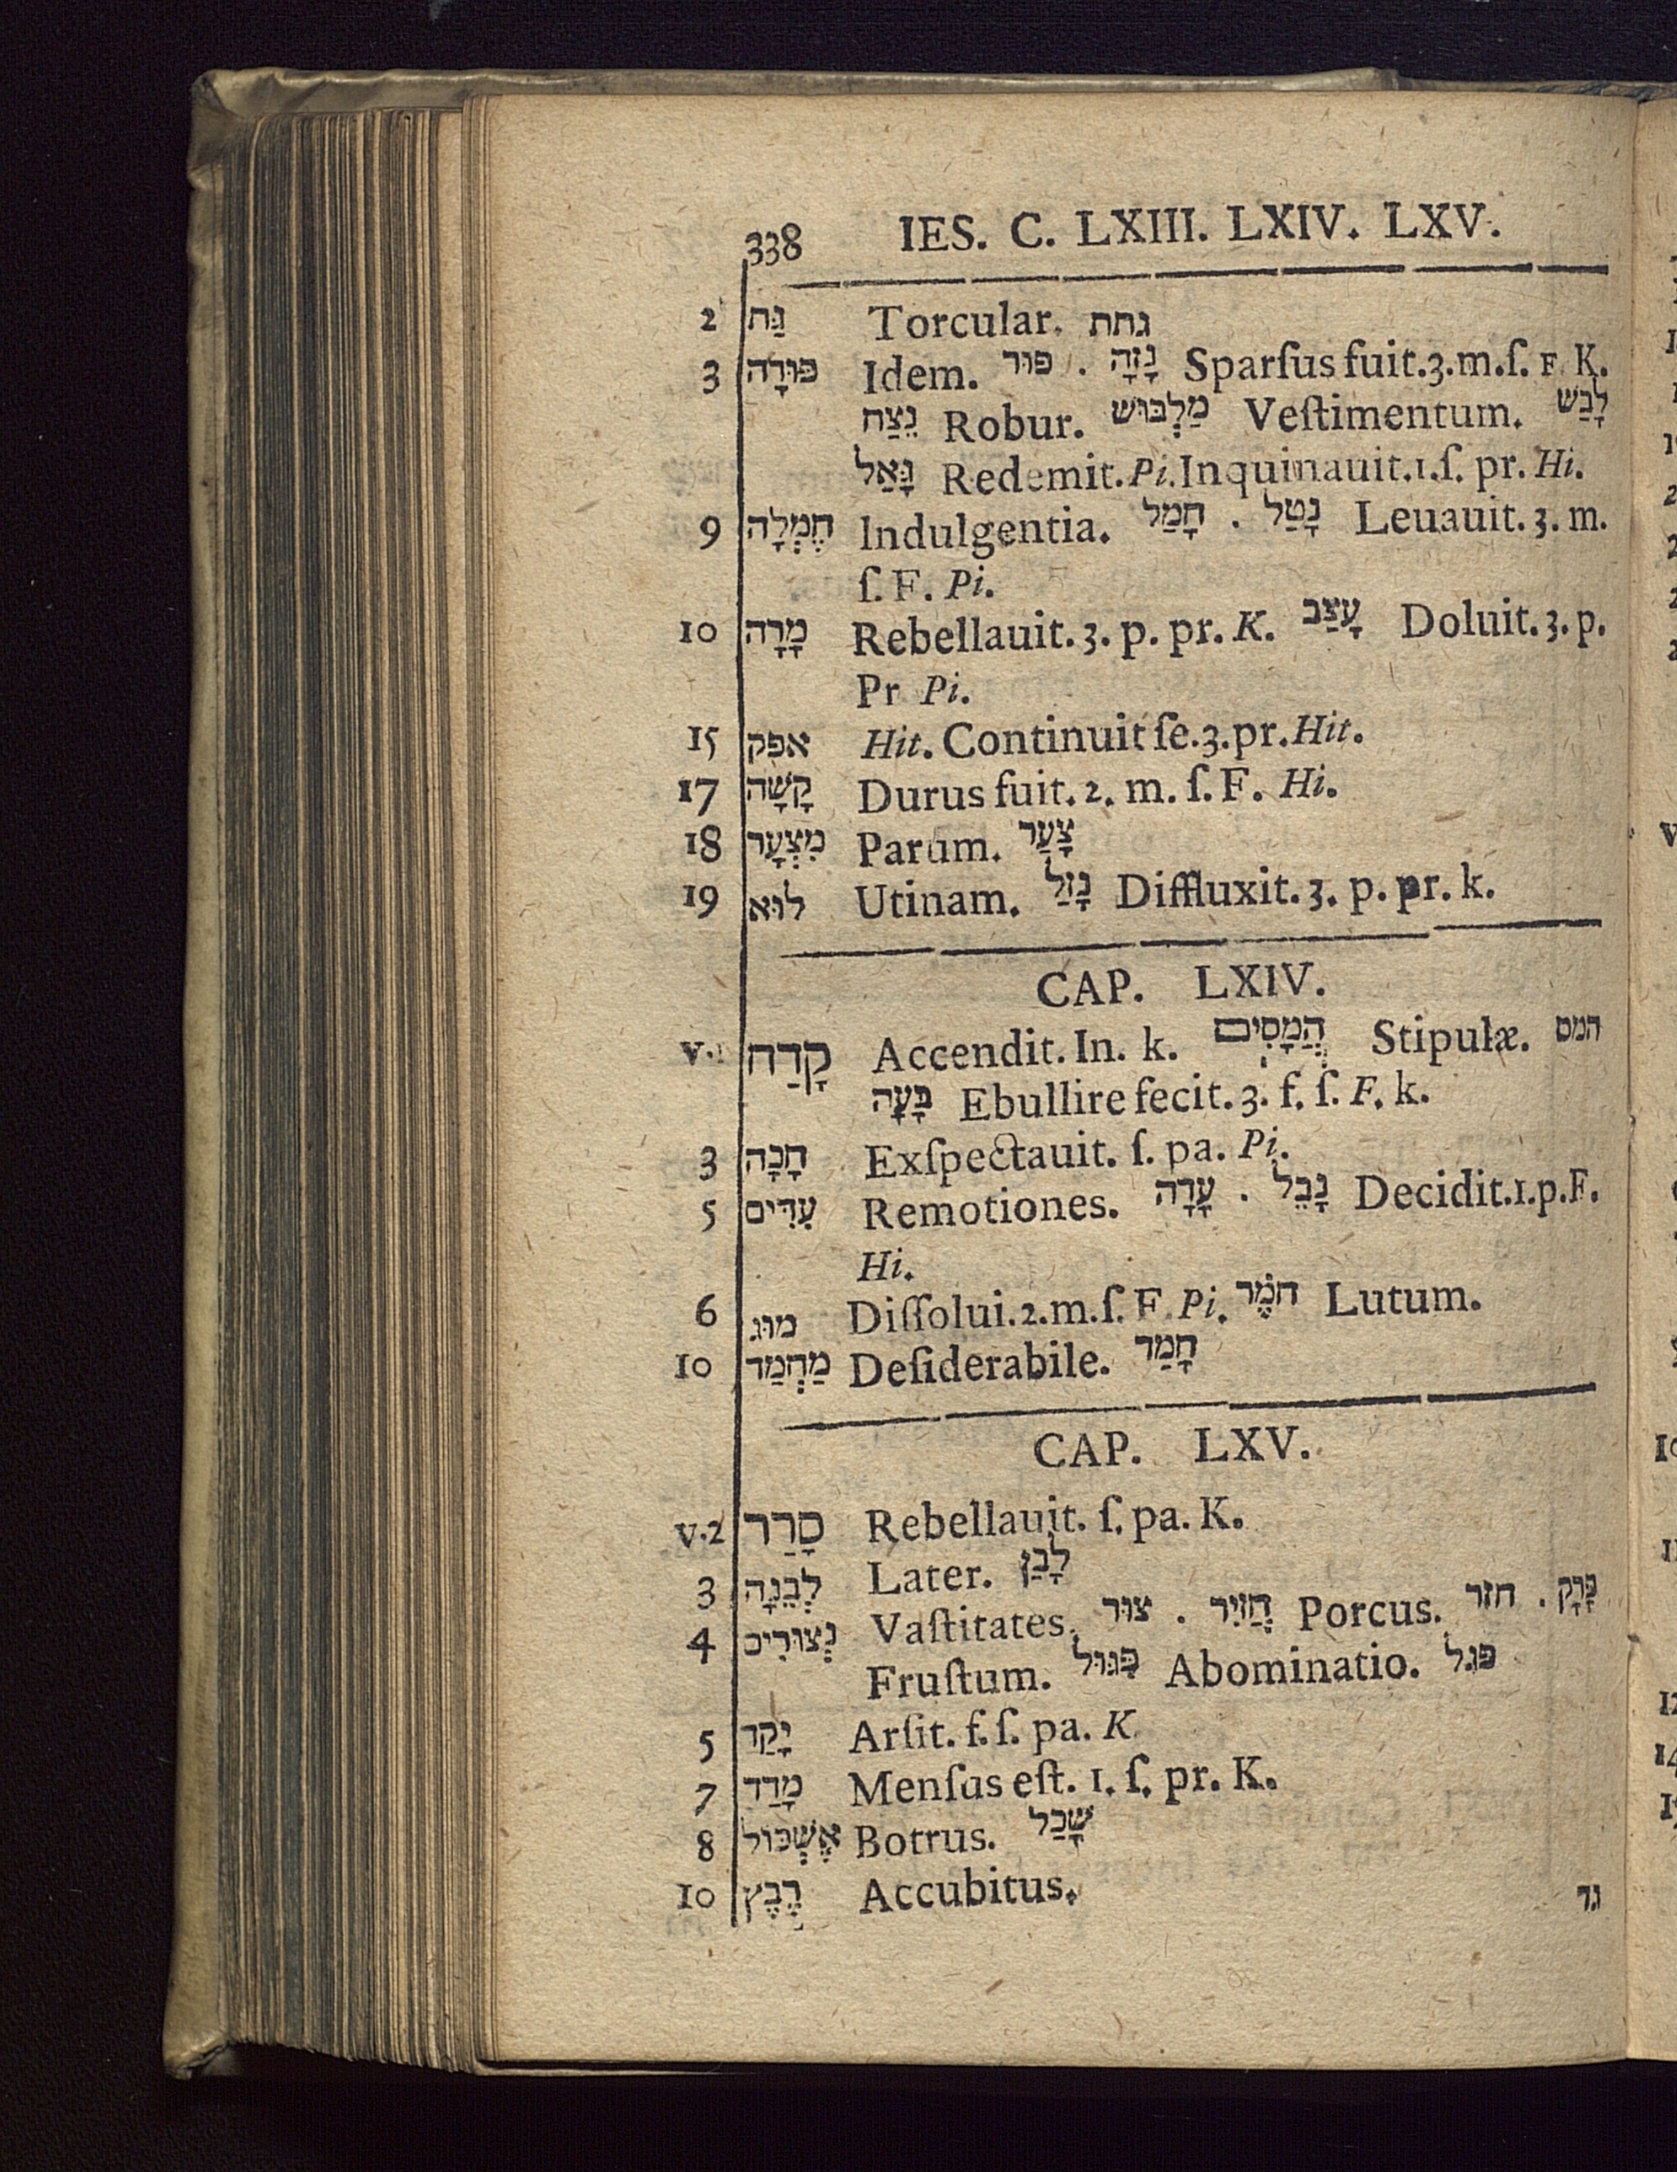 338 IES. C. LXIII. LXIV. LXV.
2 גַּת Torcular. גתת
3 פּוּרָה Idem. פּוּר . נָזָה Sparſus fuit.3.m.ſ. F K.
נֵצַח Robur. מַלְבּוּשׁ Veſtimentum. לָבַשׁ
גָּאַל Redemit. Pi. Inquinauit.1.ſ. pr. Hi.
9 חֶמְלָה Indulgentia. חָמַל . נָטַל Leuauit. 3. m.
ſ. F. Pi.
10 מָרָה Rebellauit. 3. p. pr. K. עָצַב Doluit. 3. p.
Pr Pi.
15 אפק Hit. Continuit ſe.3.pr. Hit.
17 קָשָׁה Durus fuit. 2. m. ſ. F. Hi.
18 מִצְעָר Parum. צָעַר
19 לוּא Utinam. נָזַל Diffluxit. 3. p. pr. k.
CAP. LXIV.
v.1 קָדַח Accendit. In. k. הֲמָסִים Stipulæ. המס
בָּעָה Ebullire fecit. 3. f. ſ. F. k.
3 חָכָה Exſpectauit. ſ. pa. Pi.
5 עִדִּים Remotiones. עָדָה . נָבֵל Decidit.1.p.F.
Hi.
6 מוּג Diſſolui.2.m.ſ. F Pi. חֹמֶר Lutum.
10 מַחְמַד Deſiderabile. חָמַד
CAP. LXV.
v.2 סָרַר Rebellauit. ſ. pa. K.
3 לְבֵנָה Later. לָבַן
4 נְצוּרִים Vaſtitates. צוּר . חֲזִיר Porcus. חזר . פָּרָק
Fruſtum. פִּגּוּל Abominatio. פגל
5 יָקַד Arſit. f. ſ. pa. K
7 מָדַד Menſus eſt. 1. ſ. pr. K.
8 אֶשְׁכּוֹל Botrus. שָׁכַל
10 רֶבֶץ Accubitus.
גד